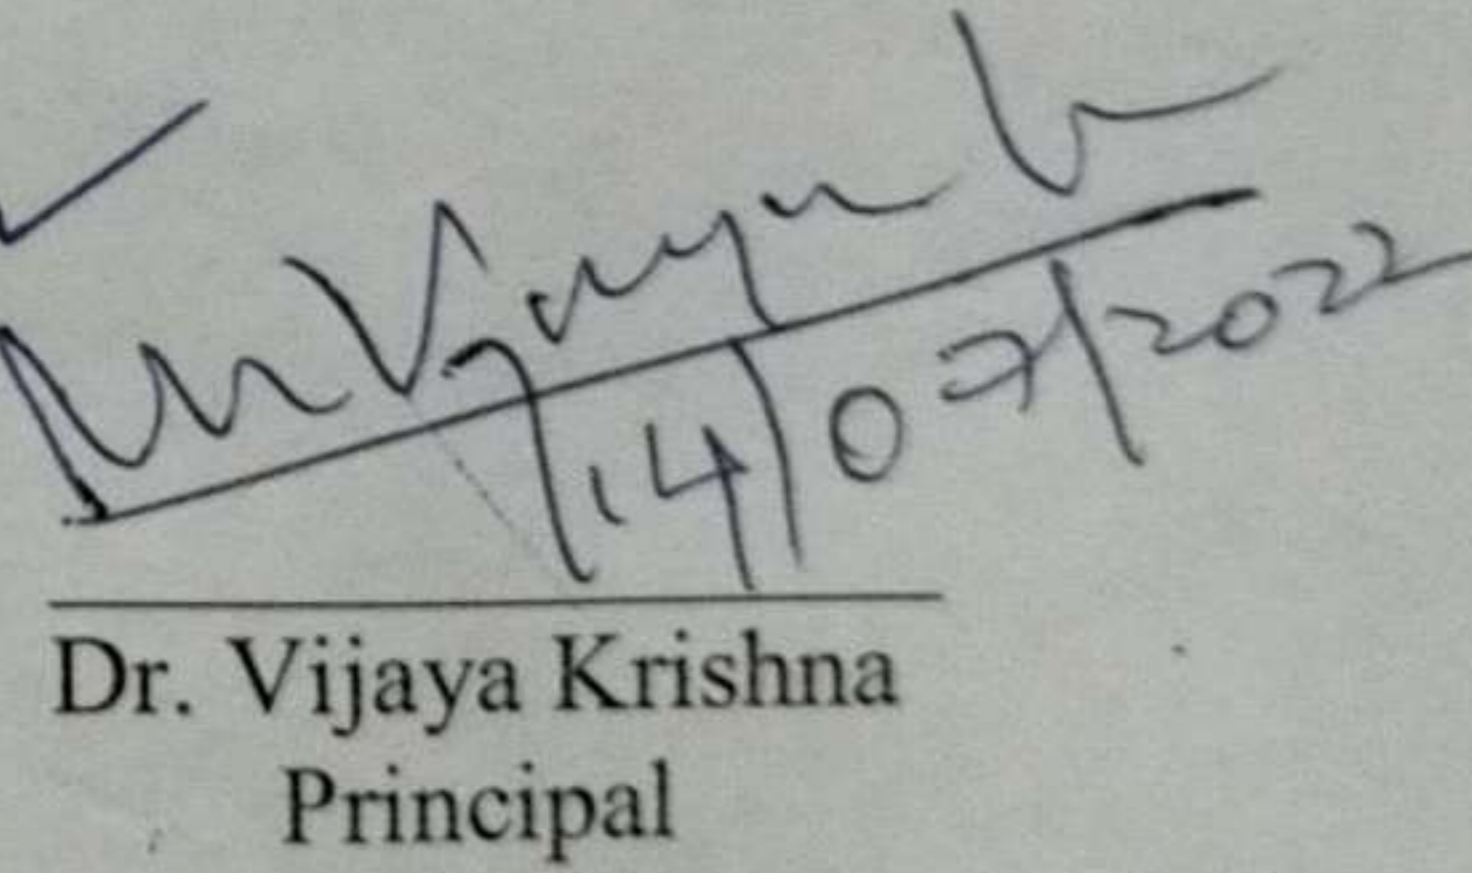 14/07/2022
Dr. Vijaya Krishna
Principal